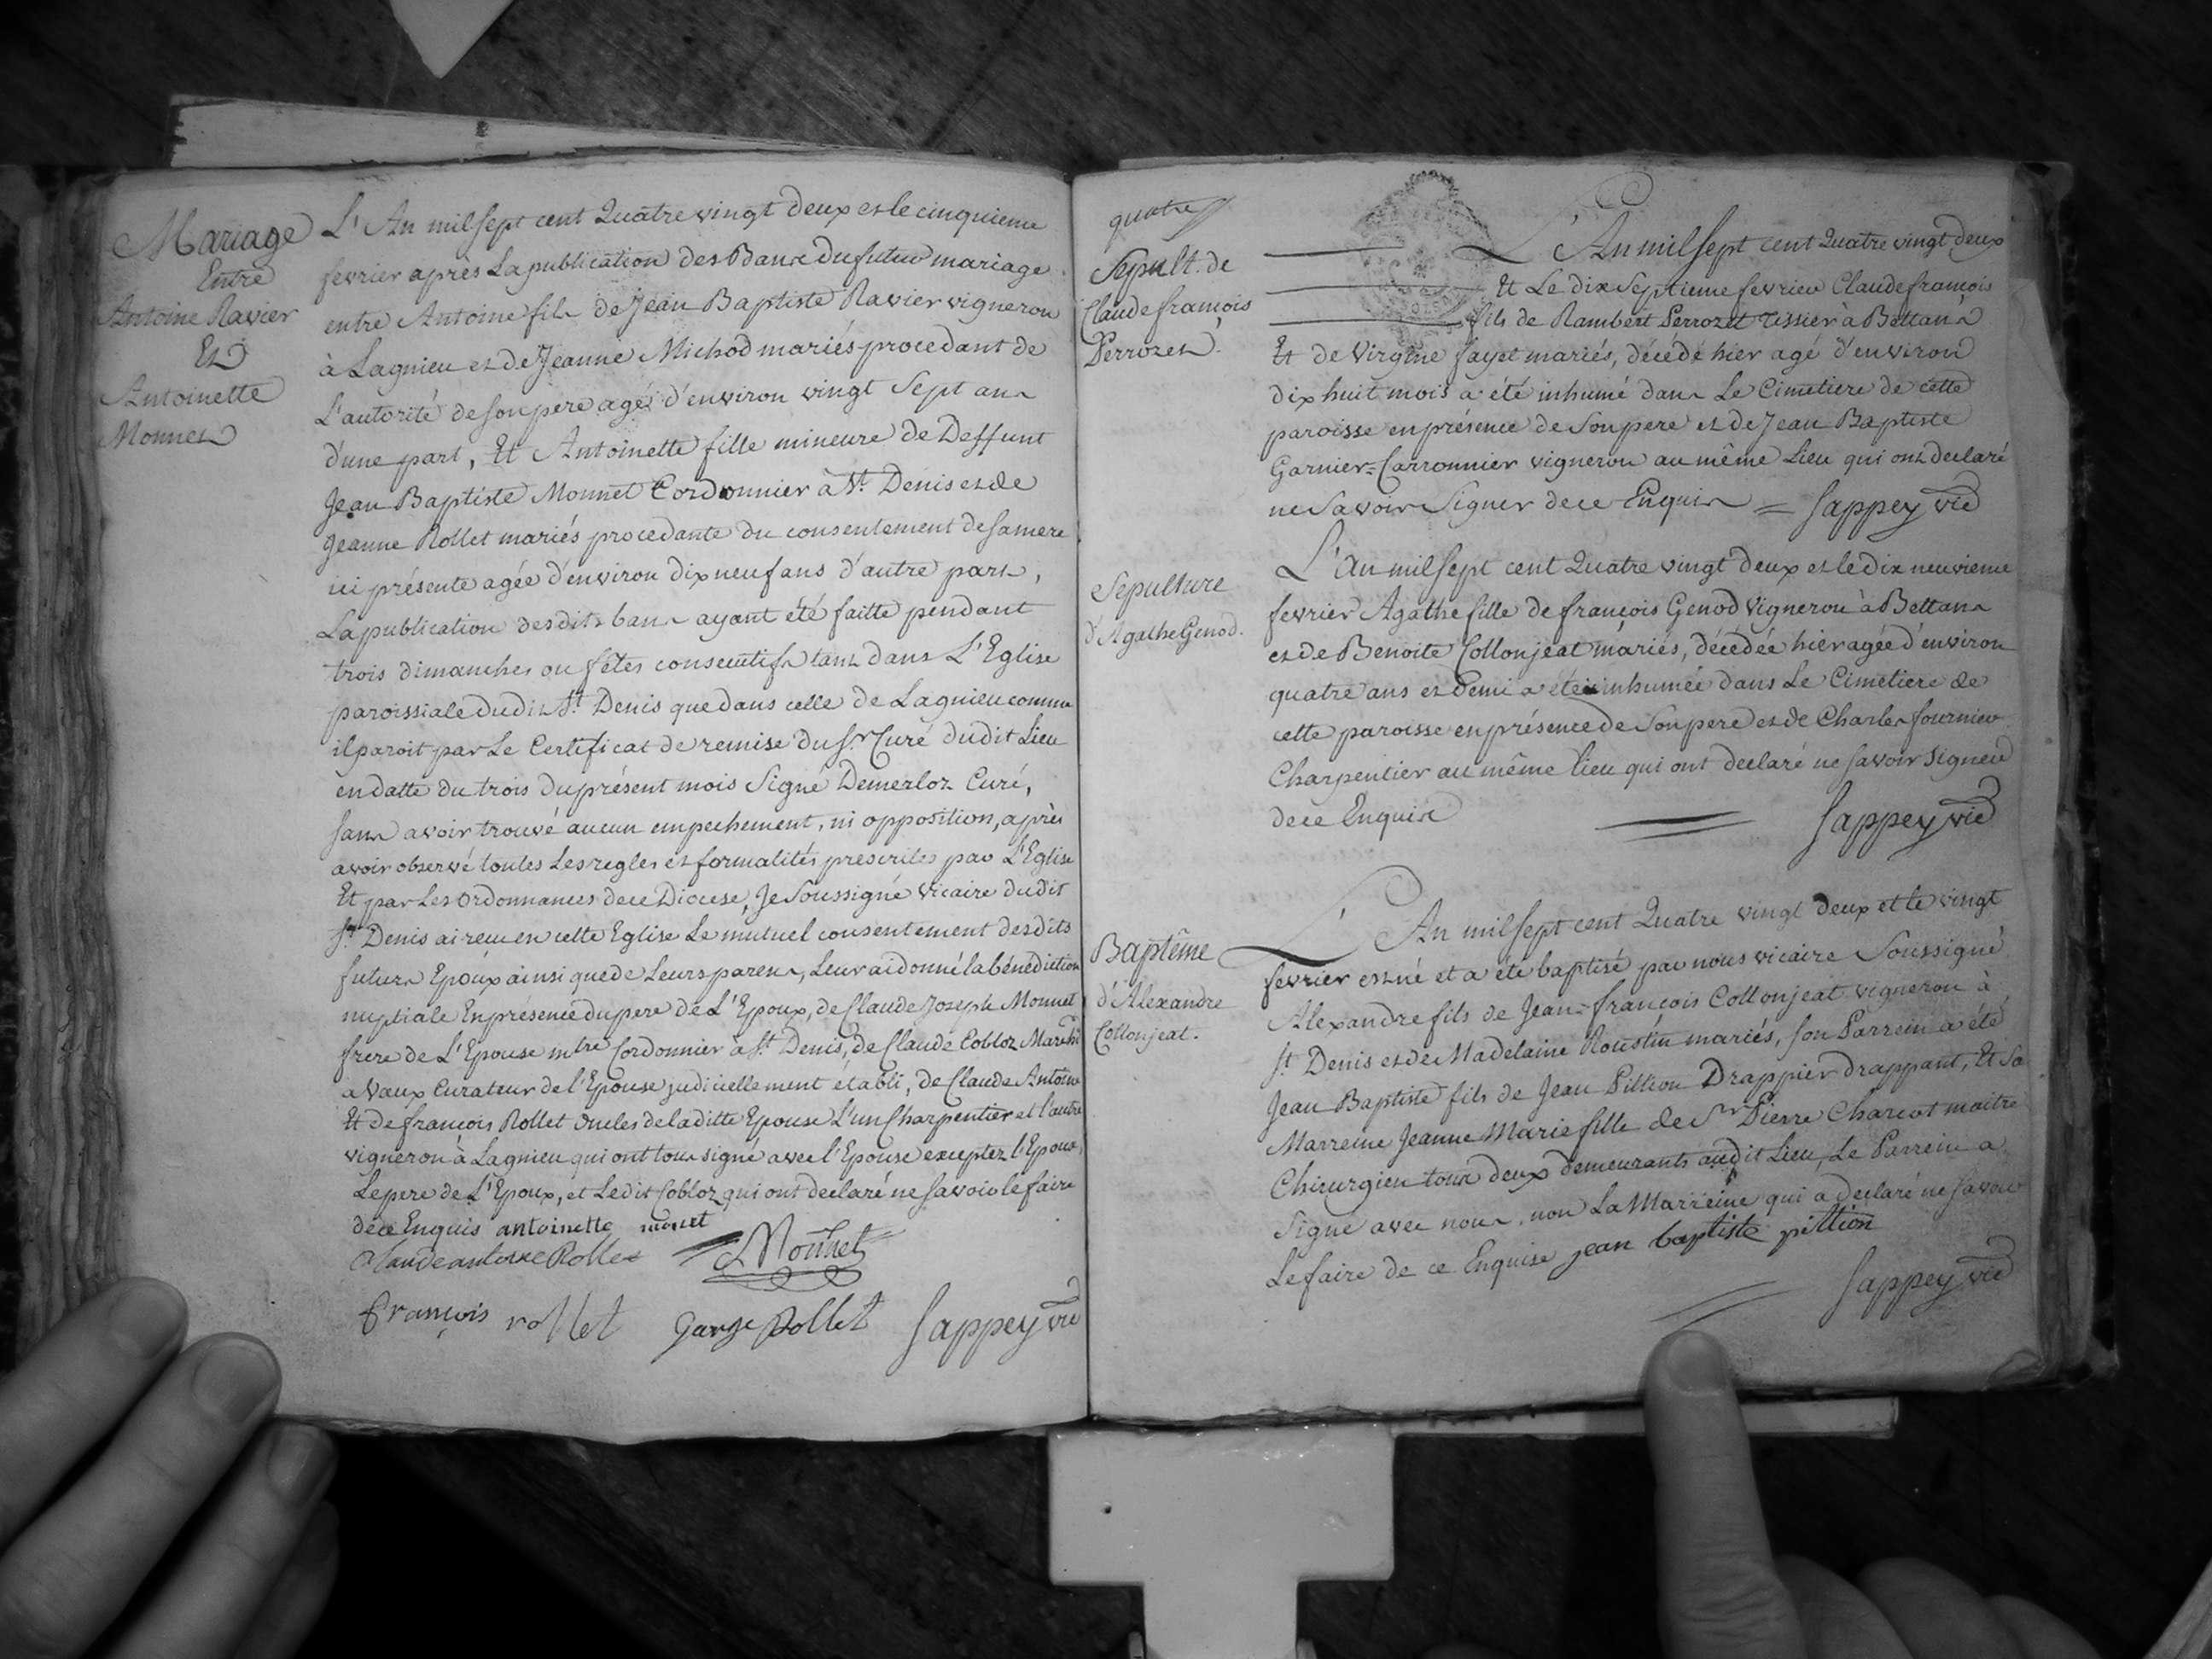 Mariage
Entre
Antoine Ravier
Et
Antoinette
Monnet
L'An mil sept cent Quatre vingt deux et le cinquieme
fevrier après La publication des Bans du futur mariage
entre Antoine fils de Jean Baptiste Ravier vigneron
à Lagnieu et de Jeanne Michod mariés procedant de
L'autorité de son pere agé d'environ vingt Sept ans
d'une part, Et Antoinette fille mineure de Deffunt
Jean Baptiste Monnet Cordonnier à St. Denis et de
Jeanne Rollet mariés procedante du consentement de sa mere
ici présente agée d'environ dix neuf ans d'autre part,
La publication desdits bans ayant été faitte pendant
trois dimanches ou fêtes consecutifs tant dans L'Eglise
paroissiale dudit St. Denis que dans celle de Lagnieu comme
il paroit par Le Certificat de remise du Sr. Curé dudit Lieu
en datte du trois du présent mois Signé Demerloz Curé,
sans avoir trouvé aucun empechement, ni opposition, après
avoir observé toutes Les regles et formalités prescrites par L'Eglise
Et par Les ordonnances de ce Diocese, Je Soussigné vicaire dudit
St. Denis ai recu en cette Eglise Le mutuel consentement desdits
futurs Epoux ainsi que de Leurs parens, Leur ai donné la bénédiction
nuptiale En présence du pere de L'Epoux, de Claude Joseph Monnet
frere de L'Epouse mtre Cordonnier à St. Denis, de Claude Cobloz Marchd
a Vaux Curateur de l'Epouse judiciellement établi, de Claude Antoine
Et de françois Rollet oncles de laditte Epouse L'un Charpentier et l'autre
vigneron à Lagnieu qui ont tous signé avec l'Epouse exceptez l'Epoux,
Le pere de L'Epoux, et Ledit Cobloz qui ont declaré ne savoir le faire
de ce Enquis antoinette monet
Claude antoine Rollet Monnet
François rollet George Rollet Sappey vic
quatre
Sepult. de
Claude françois
Perrozet.
L'An mil sept cent Quatre vingt deux
Et Le dix Septieme fevrier Claude françois
fils de Rambert Perrozet Tissier à Bettans
Et de Virgine fayet mariés, décédé hier agé d'environ
dix huit mois a été inhumé dans Le Cimetiere de cette
paroisse en présence de Son pere et de Jean Baptiste
Garnier=Carronnier vigneron au même Lieu qui ont declaré
ne Savoir Signer de ce Enquis = Sappey vic
Sepulture
d'Agathe Genod.
L'An mil sept cent Quatre vingt deux et le dix neuvieme
fevrier Agathe fille de françois Genod Vigneron à Bettans
et de Benoite Collonjeat mariés, décédée hier agée d'environ
quatre ans et demi a été inhumée dans Le Cimetiere de
cette paroisse en présence de Son pere et de Charles fournier
Charpentier au même lieu qui ont declaré ne savoir signer
de ce Enquis
Sappey vic
Baptême
d'Alexandre
Collonjeat.
L'An mil sept cent Quatre vingt deux et le vingt
fevrier est né et a été baptisé par nous vicaire Soussigné
Alexandre fils de Jean-françois Collonjeat vigneron à
St. Denis et de Madelaine Roustin mariés, son Parrein a été
Jean Baptiste fils de Jean Pittion Drappier drappant, Et Sa
Marreine Jeanne Marie fille de Sr Pierre Charcot maitre
Chirurgien tous deux demeurants audit Lieu, Le Parrein a
Signé avec nous, non La Marreine qui a declaré ne savoir
Le faire de ce Enquise jean baptiste pittion
Sappey vic